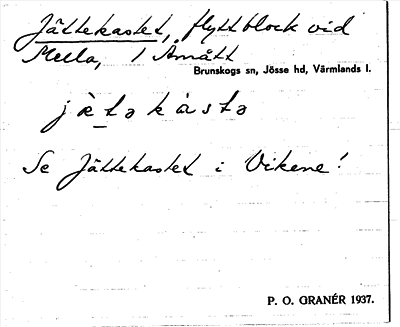 Jättekastet, flyttblock vid
Mella, 1 Åmått
Brunskogs sn, Jösse hd, Värmlands l.
jὲtəkàstə
Se Jättekastet i Vikene!
P. O. GRANÉR 1937.